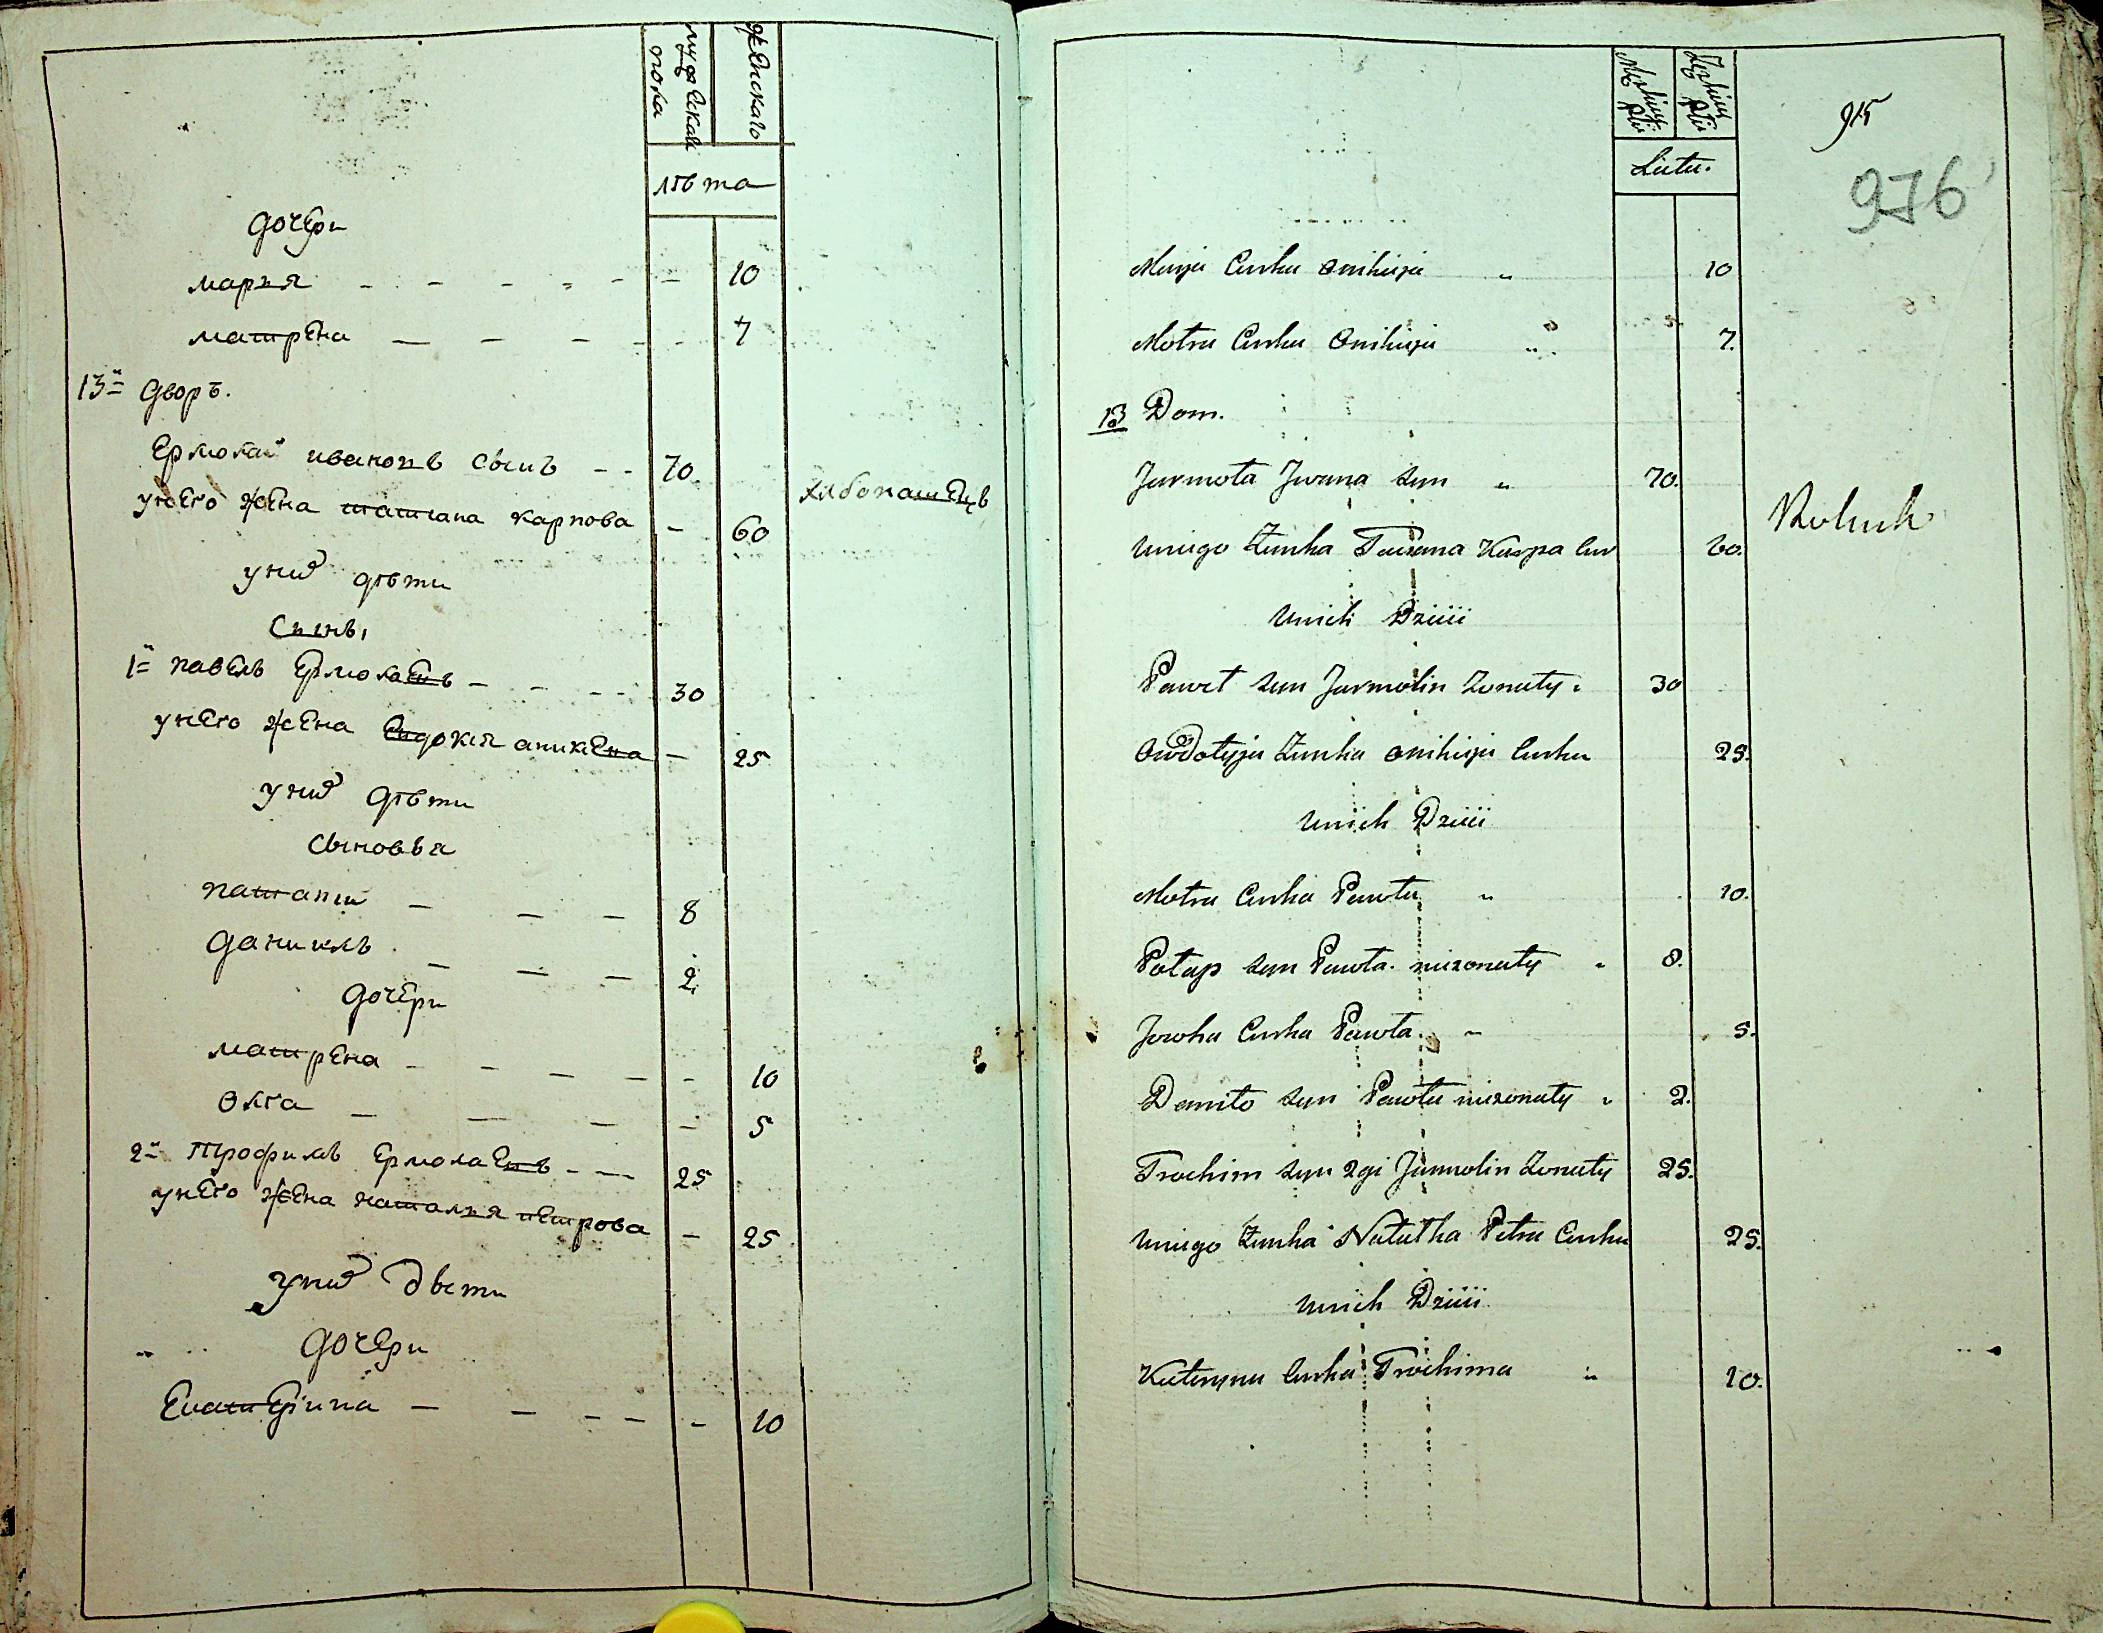 мужеска пола
женскаго
лѣта
дочери
марья - - - - - - 10
матрена - - - - - 7
13й дворъ.
Ермолай ивановъ сынъ - - 70
хлебопашецъ
унего жена татиана карпова - 60
у них дѣти
Сынъ,
1й павелъ Ермолаевъ - - - 30
унего жена Евдокия аникиева - 25
у них дѣти
сыновья
патапий - - - 8
даниилъ - - - 2
дочери
матрена - - - - - 10
Олга - - - - 5
2й Трофимъ Ермолаевъ - - - 25
унего жена наталья петрова - 25
у них дѣти
дочери
Екатерина - - - - - 10
Męskiey Płci
Żeńskiey Płci
Latu.
915
976
Maryja Curka Onikieja " 10
Motra Curka Onikieja " 7.
13 Dom.
Jarmoła Jwana syn " 70.
Rolnik
Uniego Żunka Taciana Karpa Cur 60.
Unich Dzieci
Paweł syn Jarmolin Żonaty " 30
Owdotyja Żunka Onikieja Curka 25.
Unich Dzieci
Motra Curka Pawła " 10.
Potap syn Pawła nieżonaty " 8.
Jowha Curka Pawła " 5.
Daniło syn Pawła nieżonaty " 2.
Trochim syn 2gi Jarmolin Żonaty 25.
Uniego Żunka Natałka Petra Curka 25.
Unich Dzieci
Kateryna Curka Trochima " 10.